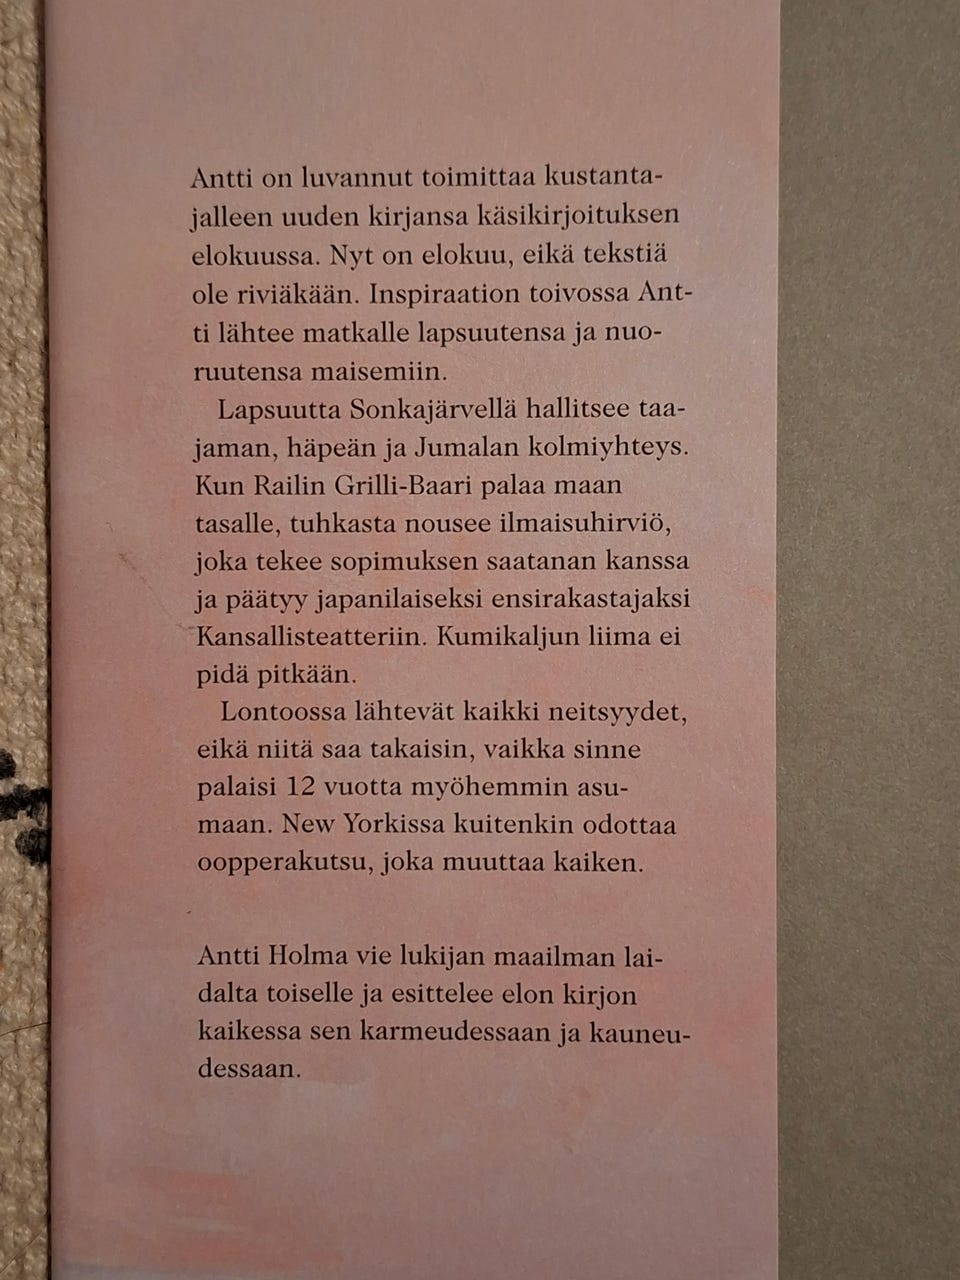 Antti on luvannut toimittaa kustanta-
jalleen uuden kirjansa käsikirjoituksen
elokuussa. Nyt on elokuu, eikä tekstiä
ole riviäkään. Inspiraation toivossa Ant-
ti lähtee matkalle lapsuutensa ja nuo-
ruutensa maisemiin.
Lapsuutta Sonkajärvellä hallitsee taa-
jaman, häpeän ja Jumalan kolmiyhteys.
Kun Railin Grilli-Baari palaa maan
tasalle, tuhkasta nousee ilmaisuhirviö,
joka tekee sopimuksen saatanan kanssa
ja päätyy japanilaiseksi ensirakastajaksi
Kansallisteatteriin. Kumikaljun liima ei
pidä pitkään.
Lontoossa lähtevät kaikki neitsyydet,
eikä niitä saa takaisin, vaikka sinne
palaisi 12 vuotta myöhemmin asu-
maan. New Yorkissa kuitenkin odottaa
oopperakutsu, joka muuttaa kaiken.
Antti Holma vie lukijan maailman lai-
dalta toiselle ja esittelee elon kirjon
kaikessa sen karmeudessaan ja kauneu-
dessaan.